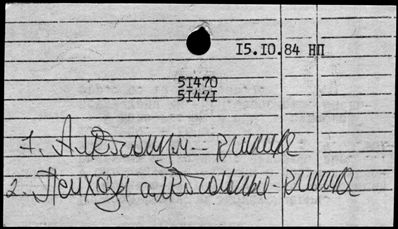 15.10.84 НП
51470
51471
1. Алкоголизм - клиника
2. Психозы алкогольные - клиника